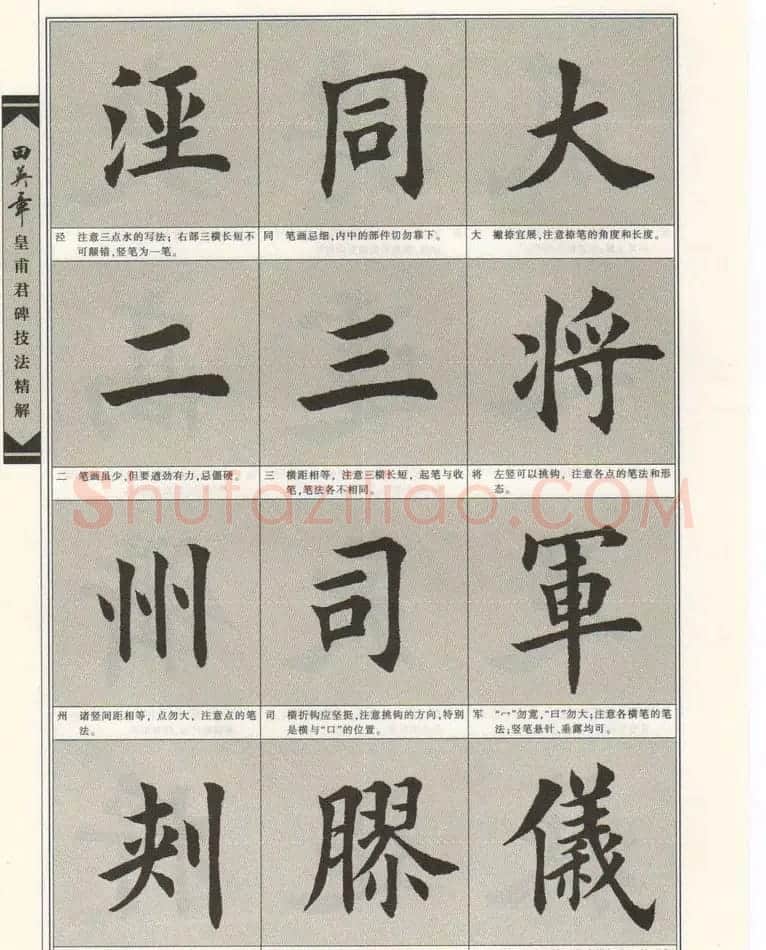 大
大 撇捺宜展,注意捺笔的角度和长度。
将
将 左竖可以挑钩,注意各点的笔法和形
态。
軍
军 “冖”勿宽,“曰”勿大;注意各横笔的笔
法;竖笔悬针、垂露均可。
儀
同
同 笔画忌细,内中的部件切勿靠下。
三
三 横距相等,注意三横长短,起笔与收
笔,笔法各不相同。
司
司 横折钩应坚挺,注意挑钩的方向,特别
是横与“口”的位置。
膠
涇
泾 注意三点水的写法;右部三横长短不
可颠错,竖笔为一笔。
二
二 笔画虽少,但要遒劲有力,忌僵硬。
州
州 诸竖间距相等,点勿大,注意点的笔
法。
刾
田英章皇甫君碑技法精解
Shufaziliao.COM